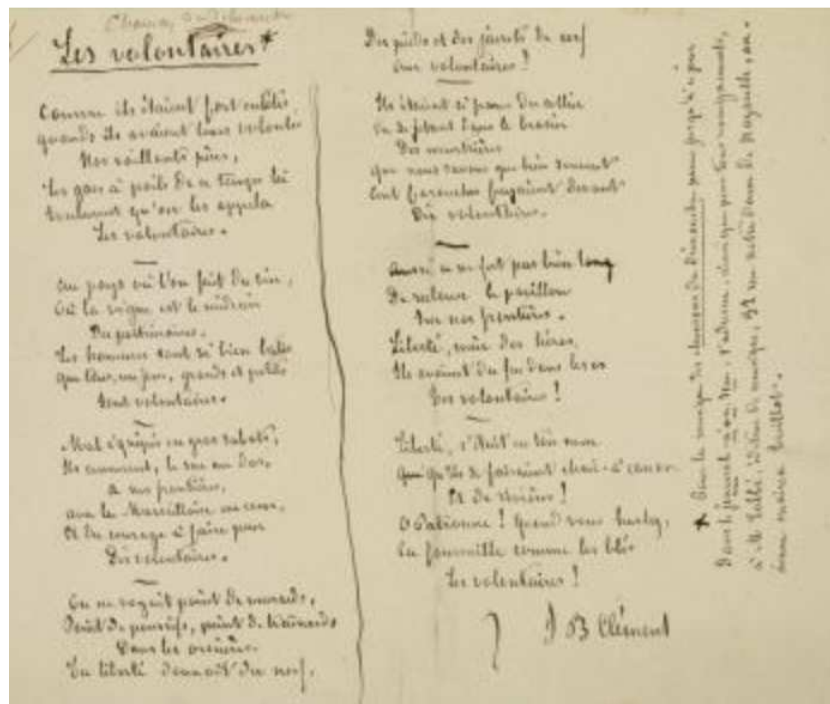 Les volontaires *
Comme ils étaient fort entêtés
quands ils avaient leurs volontés
Nos vaillants pères,
Les gars à poils de ce temps là
voulurent qu'on les appela
Les volontaires.
Au pays où l'on fait du vin,
Où la vigne est le médecin
Des
Les hommes sont si bien bâtis
que tous, un jour, grands et petits
Sont volontaires.
Mal équipés en gros sabots,
Ils courraient, le sac au dos,
à nos frontières,
avec la Marseillaise au cœur,
Et du courage à faire peur
Des volontaires.
On ne voyait point de
Point de point de trainards
Dans les ornières.
La liberté donnait du nerf,
Des pieds et des jarrets de cerf
aux volontaires !
Ils étaient si peu
en se jetant dans le brasier
Des meurtrières
que nous savons que bien souvent
Cent fuyaient devant
Dix volontaires.
Aussi ce ne fut pas bien long
De relever le pavillon
Sur nos frontières.
Liberté, mère des héros,
Ils avaient du feu dans les os
Tes volontaires !
Liberté, c'était en ton nom
Qu'ils se faisaient chair à canon
Et de
O Pationne ! Quand vous
Ça fourmille comme les blés
Les volontaires !
J B Clément
* Pour la musique des chansons du dimanche
dans le journal s'adresser, ainsi que pour tous renseignements,
à M. éditeur de musique, rue Notre Dame de Nazareth, an-
cienne maison